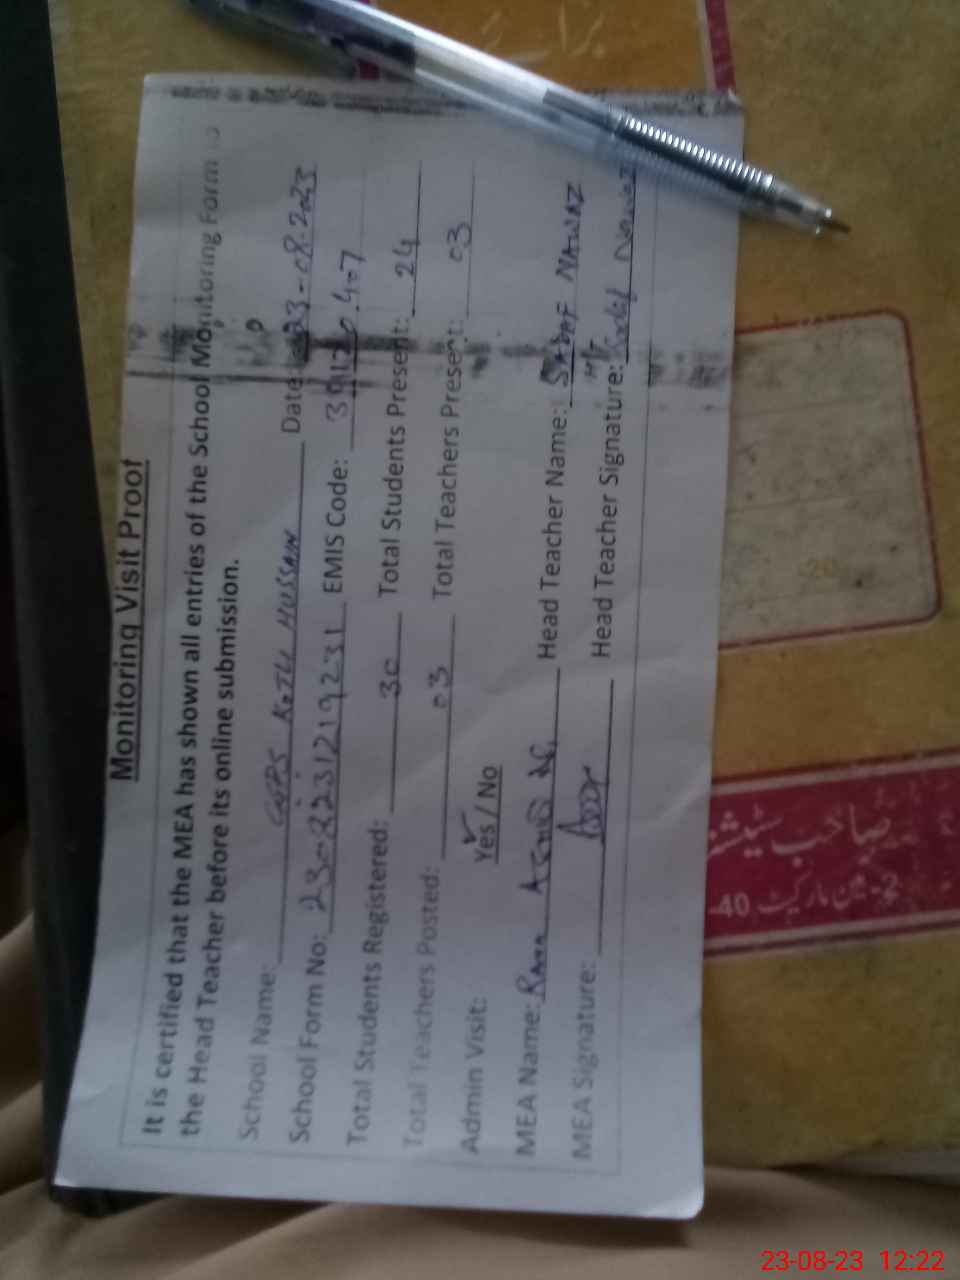 Monitoring Visit Proof
It is certified that the MEA has shown all entries of the School Monitoring Form to
the Head Teacher before its online submission.
School Name: GGPS KOTLI HUSSAIN Date: 23-08-2023
School Form No: 23-8231219231 EMIS Code: 407
Total Students Registered: 30 Total Students Present: 24
Total Teachers Posted: 03 Total Teachers Present: 03
Admin Visit: Yes / No
MEA Name: Rana Head Teacher Name: SADAF NAWAZ
MEA Signature: Head Teacher Signature: Sadaf Nawaz
صاحب
2-مین مارکیٹ 40-
23-08-23 12:22